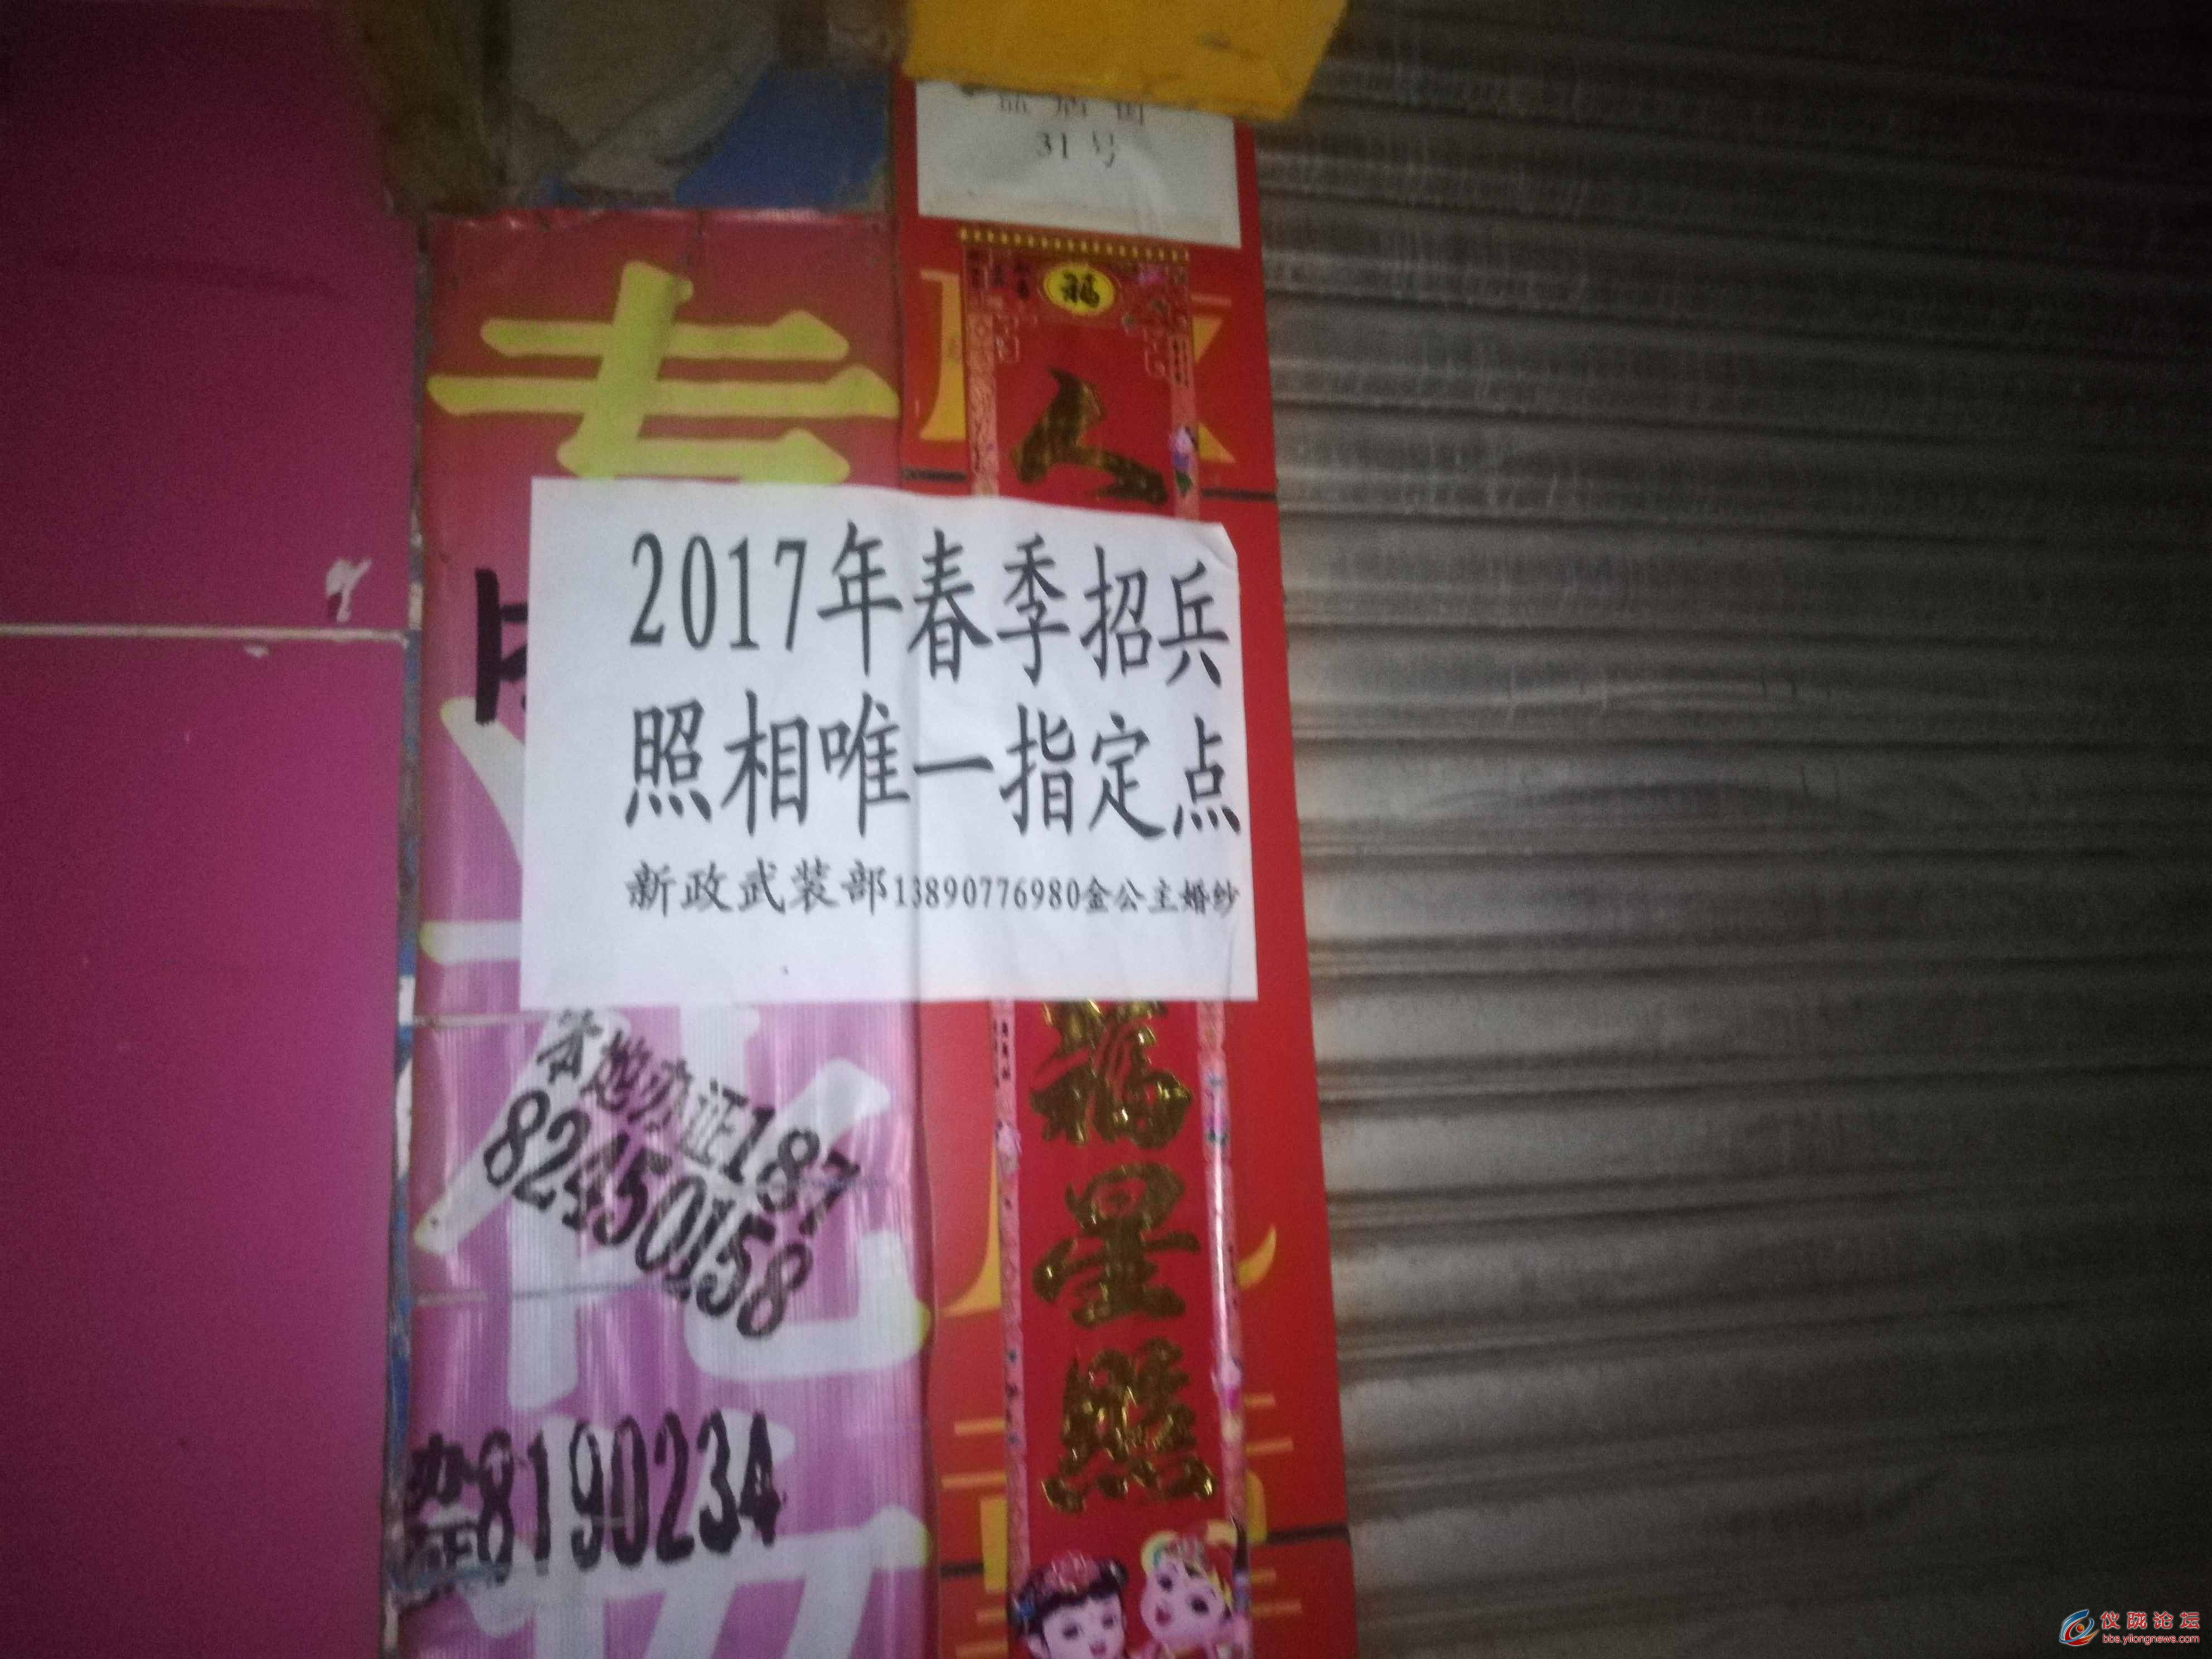 31号
福
专
人
2017年春季招兵
照相唯一指定点
新政武装部13890776980金公主婚纱
福
星
照
各地办证187
82450158
办
证8190234
仪陇论坛
bbs.yilongnews.com